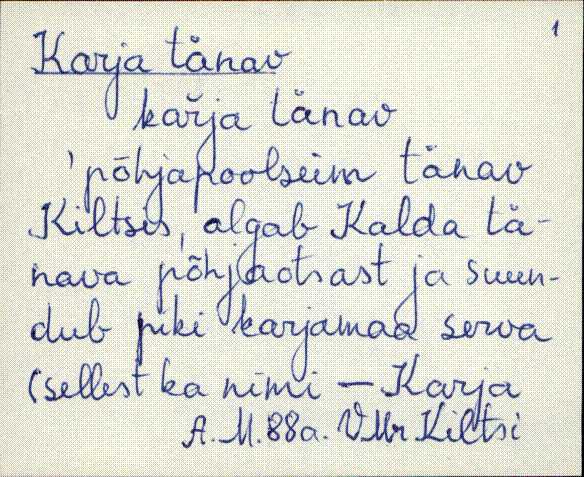 1
Karja tänav
kaŕja tänav
'põhjapoolseim tänav
Kiltsis, algab Kalda tä-
nava põhjaotsast ja suun-
dub piki karjamaa serva
(sellest ka nimi — Karja
A. M. 88a. VMr Kiltsi